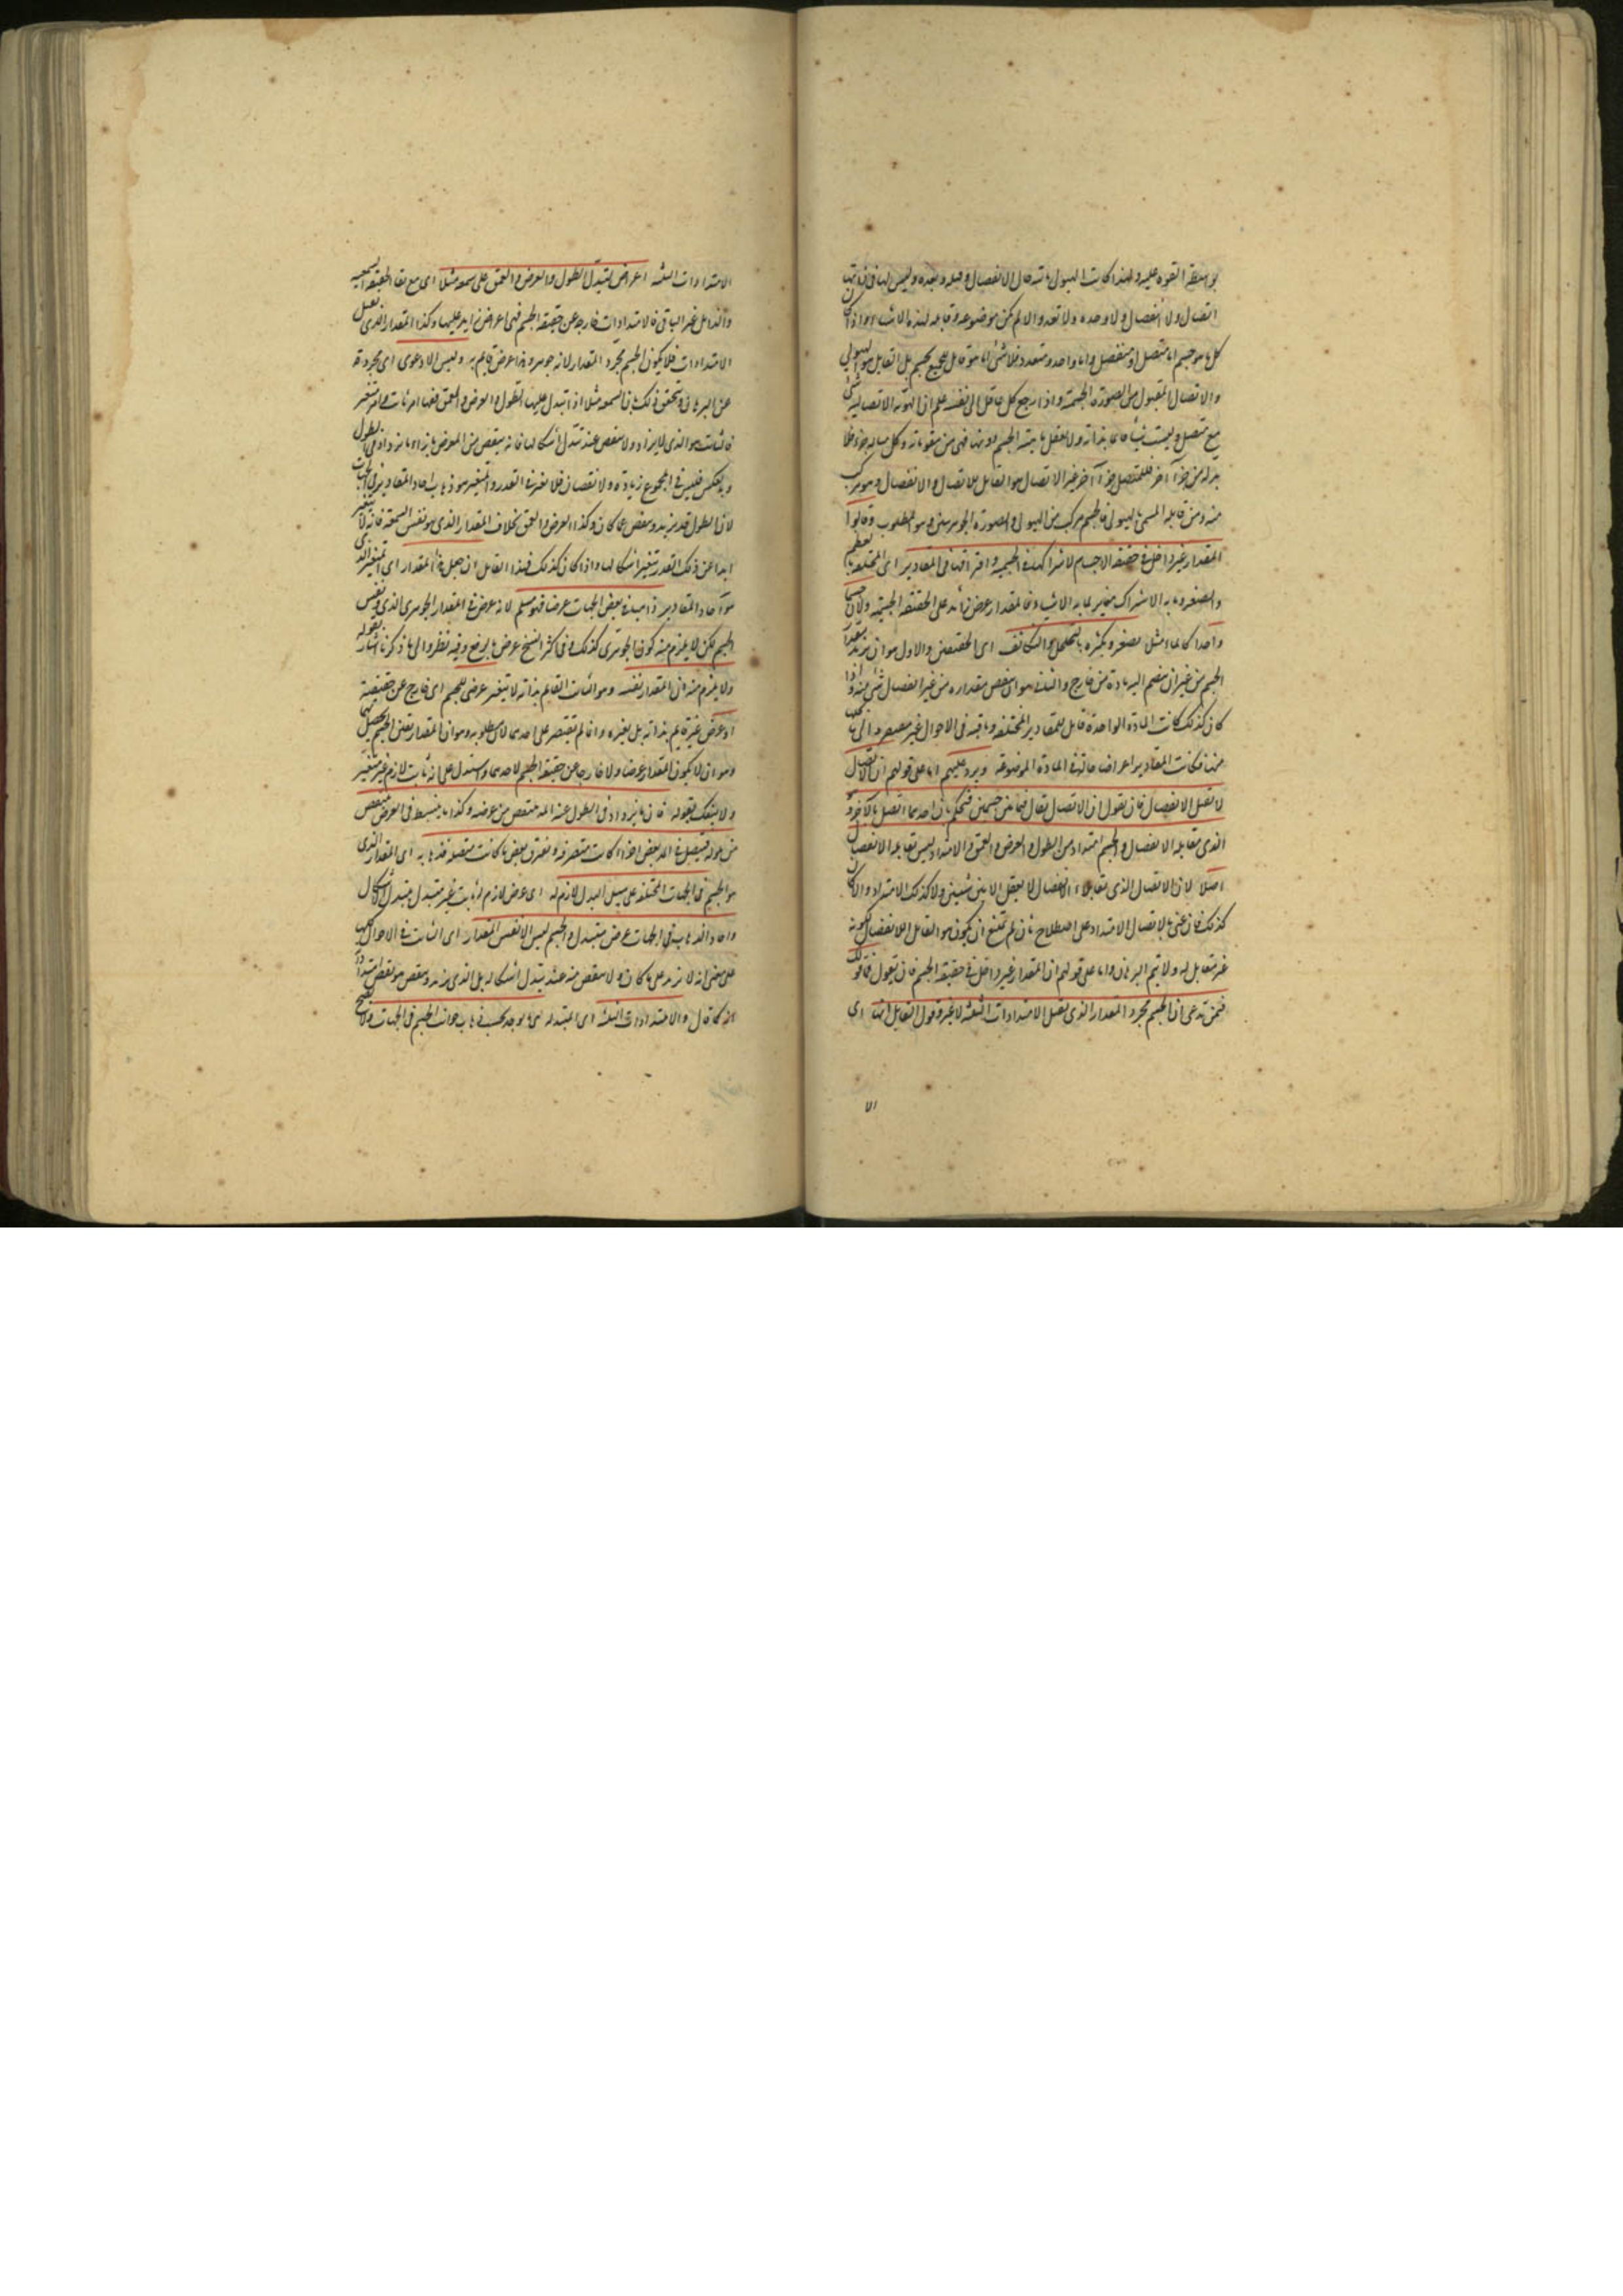 بواسطة القوة عليه ولهذا كانت الهيولى باقية حال الانفصال وقبله وبعده وليس لها في ذاتها
اتصال ولا انفصال ولا وحدة ولا تعدد والا لم يكن موضوعة وقابلة لهذه الاشياء واذا كان
كل ما هو جسم اما متصل او منفصل واما واحد ومتعدد فلا شئ مما هو قابل بجسم بل القابل هو الهيولى
والاتصال المقبول هو الصورة الجسمية واذا رجع كل عاقل الى نفسه علم ان الهوية الاتصالية شئ
مع متصل وليست شيئا قائما بذاته ولا تعقل ماهية الجسم دونها فهى من مقوماته وكل ما له جزء فلا
بد له من جزء آخر فللمتصل جزء آخر غير الاتصال هو القابل للاتصال والانفصال وهو مركب
منه ومن قابله المسمى بالهيولى فالجسم مركب من الهيولى والصورة الجوهريتين وهو المطلوب وقالوا
المقدار غير داخل في حقيقة الاجسام لاشتراكها في الجسمية وافتراقها في المقادير اى المختلفة بالعظم
والصغر وما به الاشتراك مغاير لما به الامتياز فالمقدار عرض زائد على الحقيقة الجسمية ولان جسما
واحدا كالماء مثلا يصغر ويكبر بالتخلخل والتكاثف اى الحقيقيين والاول هو ان يزيد مقدار
الجسم من غير ان ينضم اليه مادة من خارج والثاني هو ان ينقص مقداره من غير انفصال شئ منه واذا
كان كذلك كانت المادة الواحدة قابلة للمقادير المختلفة وباقية في الاحوال غير
منها فكانت المقادير اعراضا حالة في المادة الموضوعة ويرد عليهم اما على قولهم ان الاتصال
لا يقبل الانفصال فان يقول ان الاتصال يقال فيما بين جسمين فنحكم بان احدهما اتصل بالآخر وهو
الذى يقابله الانفصال والجسم امتداد من الطول والعرض والعمق والامتداد ليس يقابله الانفصال
اصلا لان الاتصال الذى يقابله الانفصال لا يعقل الا بين شيئين ولا كذلك الامتداد واذا كان
كذلك فان عنى بالاتصال الامتداد على اصطلاح ثان لم يمتنع ان يكون هو القابل للانفصال لكونه
غير مقابل له ولا يتم البرهان واما على قولهم ان المقدار غير داخل في حقيقة الجسم فان يقول قائل
فيمن يدعى ان الجسم مجرد المقدار الذى يقبل الامتدادات الثلثة لا غير وقول القايل انها اى
الا
الامتدادات الثلثة اعراض لتبدل الطول والعرض والعمق على شمعة مثلا اى مع بقاء الحقيقة الشمعية
والزائل غير الباقى فالامتدادات خارجة عن حقيقة الجسم فهى اعراض زايدة عليها وكذا المقدار الذى يقبل
الامتدادات فلا يكون الجسم مجرد المقدار لانه جوهر وهذا عرض قايم به وليس الا دعوى اى مجردة
عن البرهان وتحقيق ذلك ان الشمعة مثلا اذا تبدل عليها الطول والعرض والعمق ففيها امر ثابت وامر متغير
فالثابت هو الذى لا يزداد ولا ينقص عند تبدل اشكالها فانه ينقص من العرض بازاء ما يزداد في الطول
وبالعكس فليس في المجموع زيادة ولا نقصان فلا تغير في القدر والمتغير هو ذهاب آحاد المقادير في الجهات
لان الطول قد يزيد وينقص عما كان وكذا العرض والعمق بخلاف المقدار الذى هو نفس الشمعة فانه لا يتغير
ابدا عن ذلك القدر بتغير اشكالها واذا كان كذلك فهذا القايل ان جعل هذا المقدار اى المتغير الذى
هو آحاد المقادير ذاهبة في بعض الجهات عرضا فهو مسلم لانه عرض في المقدار الجوهرى الذى هو نفس
الجسم لكن لا يلزم منه كون الجوهرى كذلك وفى اكثر النسخ عرض بالرفع وفيه نظر والى ما ذكرنا اشار بقوله
ولا يلزم منه ان المقدار نفسه وهو الثابت القايم بذاته لا يتغير عرضى للجسم اى خارج عن حقيقته
او عرض غير قايم بذاته بل بغيره وانما لم يقتصر على احدهما
وهو ان لا يكون المقدار عرضا ولا خارجا عن حقيقة الجسم لا باحدهما واستدل على انه ثابت لازم غير متغير
ولا ينفك بقوله فان ما يزداد في الطول عند المد ينتقص من عرضه وكذا ما ينبسط في العرض ينقص
من طوله فيتصل في المد بعض اجزاء كانت متفرقة ويفترق بعض ما كانت متصلة فذهابه اى المقدار الذى
هو الجسم في الجهات المختلفة على سبيل البدل لازم له اى عرض لازم له ثابت غير متبدل بتبدل الاشكال
وآحاد الذهاب في الجهات عرض متبدل والجسم ليس الا نفس المقدار اى الثابت في الاحوال كلها
على معنى انه لا يزيد على ما كان ولا ينقص منه عند تبدل اشكاله بل الذى يزيد وينقص هو بعض امتداداته
كما قال والامتدادات الثلثة اى المتبدلة هى ما يوجد بحسب ذهاب جوانب الجسم في الجهات ولا يصح